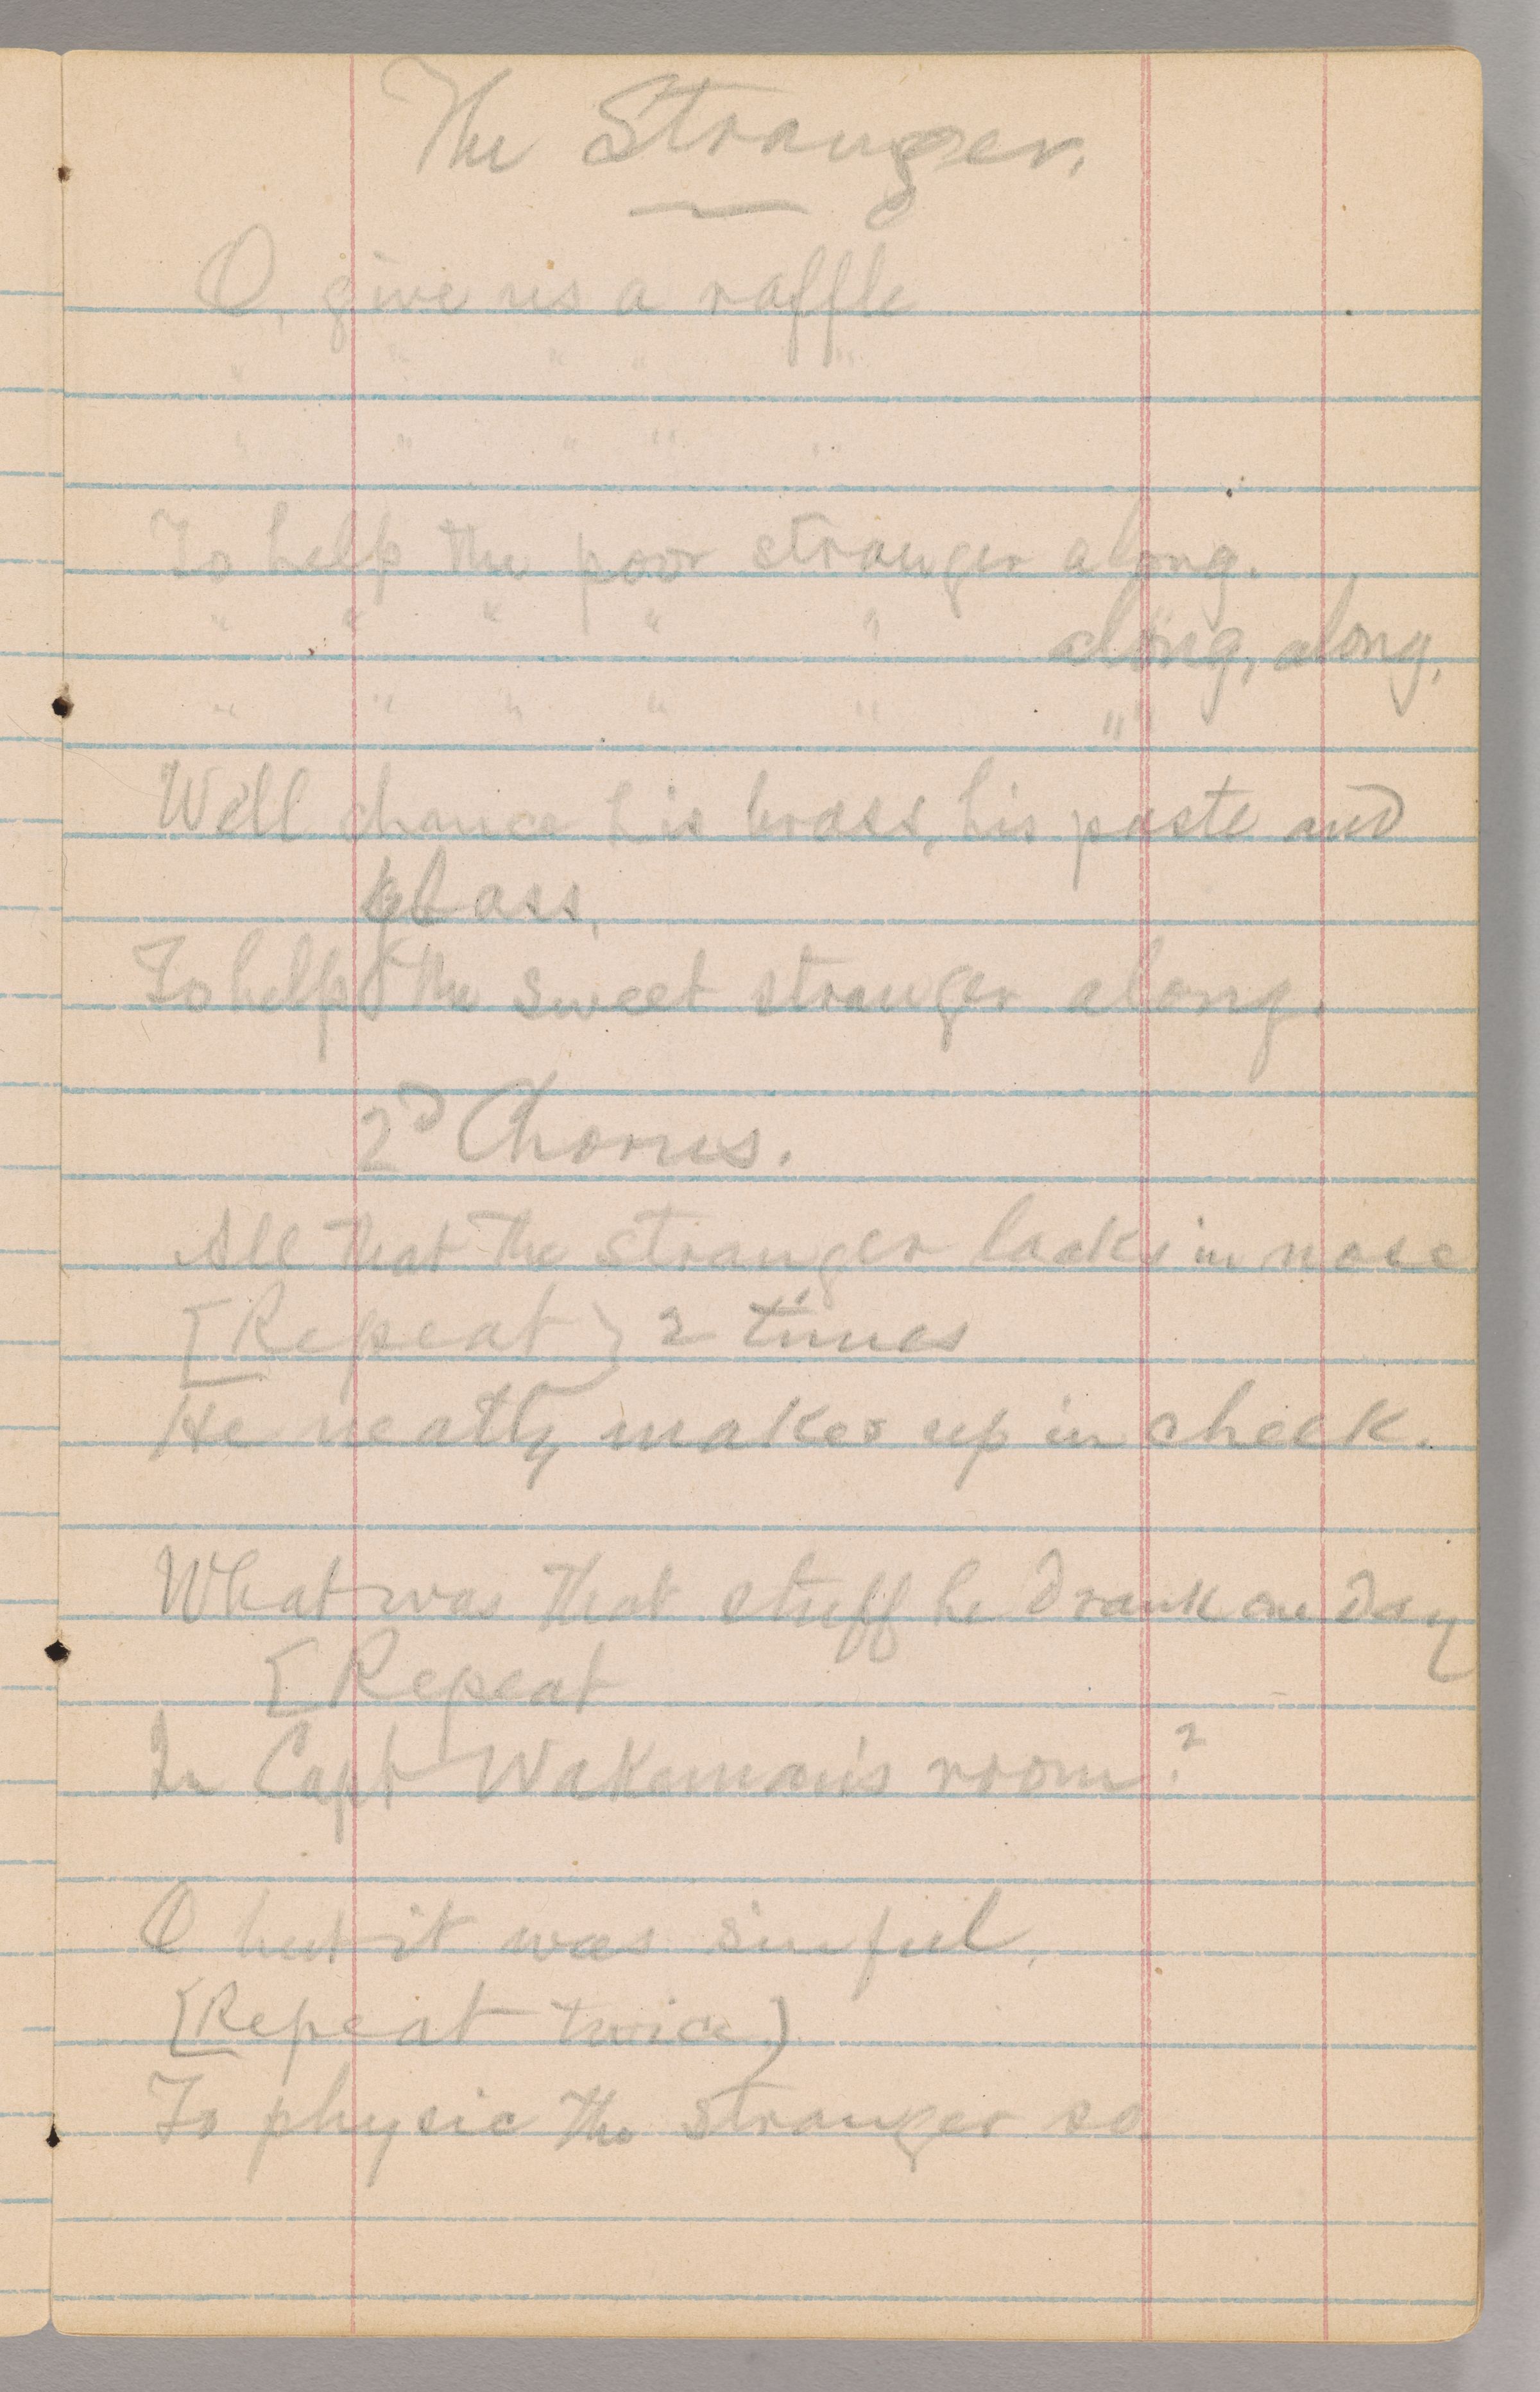 The Stranger.
O, give us a raffle
" " " " "
" " " " "
To help the poor stranger along.
" " " " " along, along,
" " " " " "
We'll chance his brass, his paste and
glass,
To help the sweet stranger along.
2d Chorus.
All that the stranger lacks in nose
[Repeat} 2 times
He neatly makes up in cheek.
What was that stuff he drank one day
[Repeat
In Capt Wakeman's room?
O but it was sinful,
[Repeat twice)
To physic the stranger so